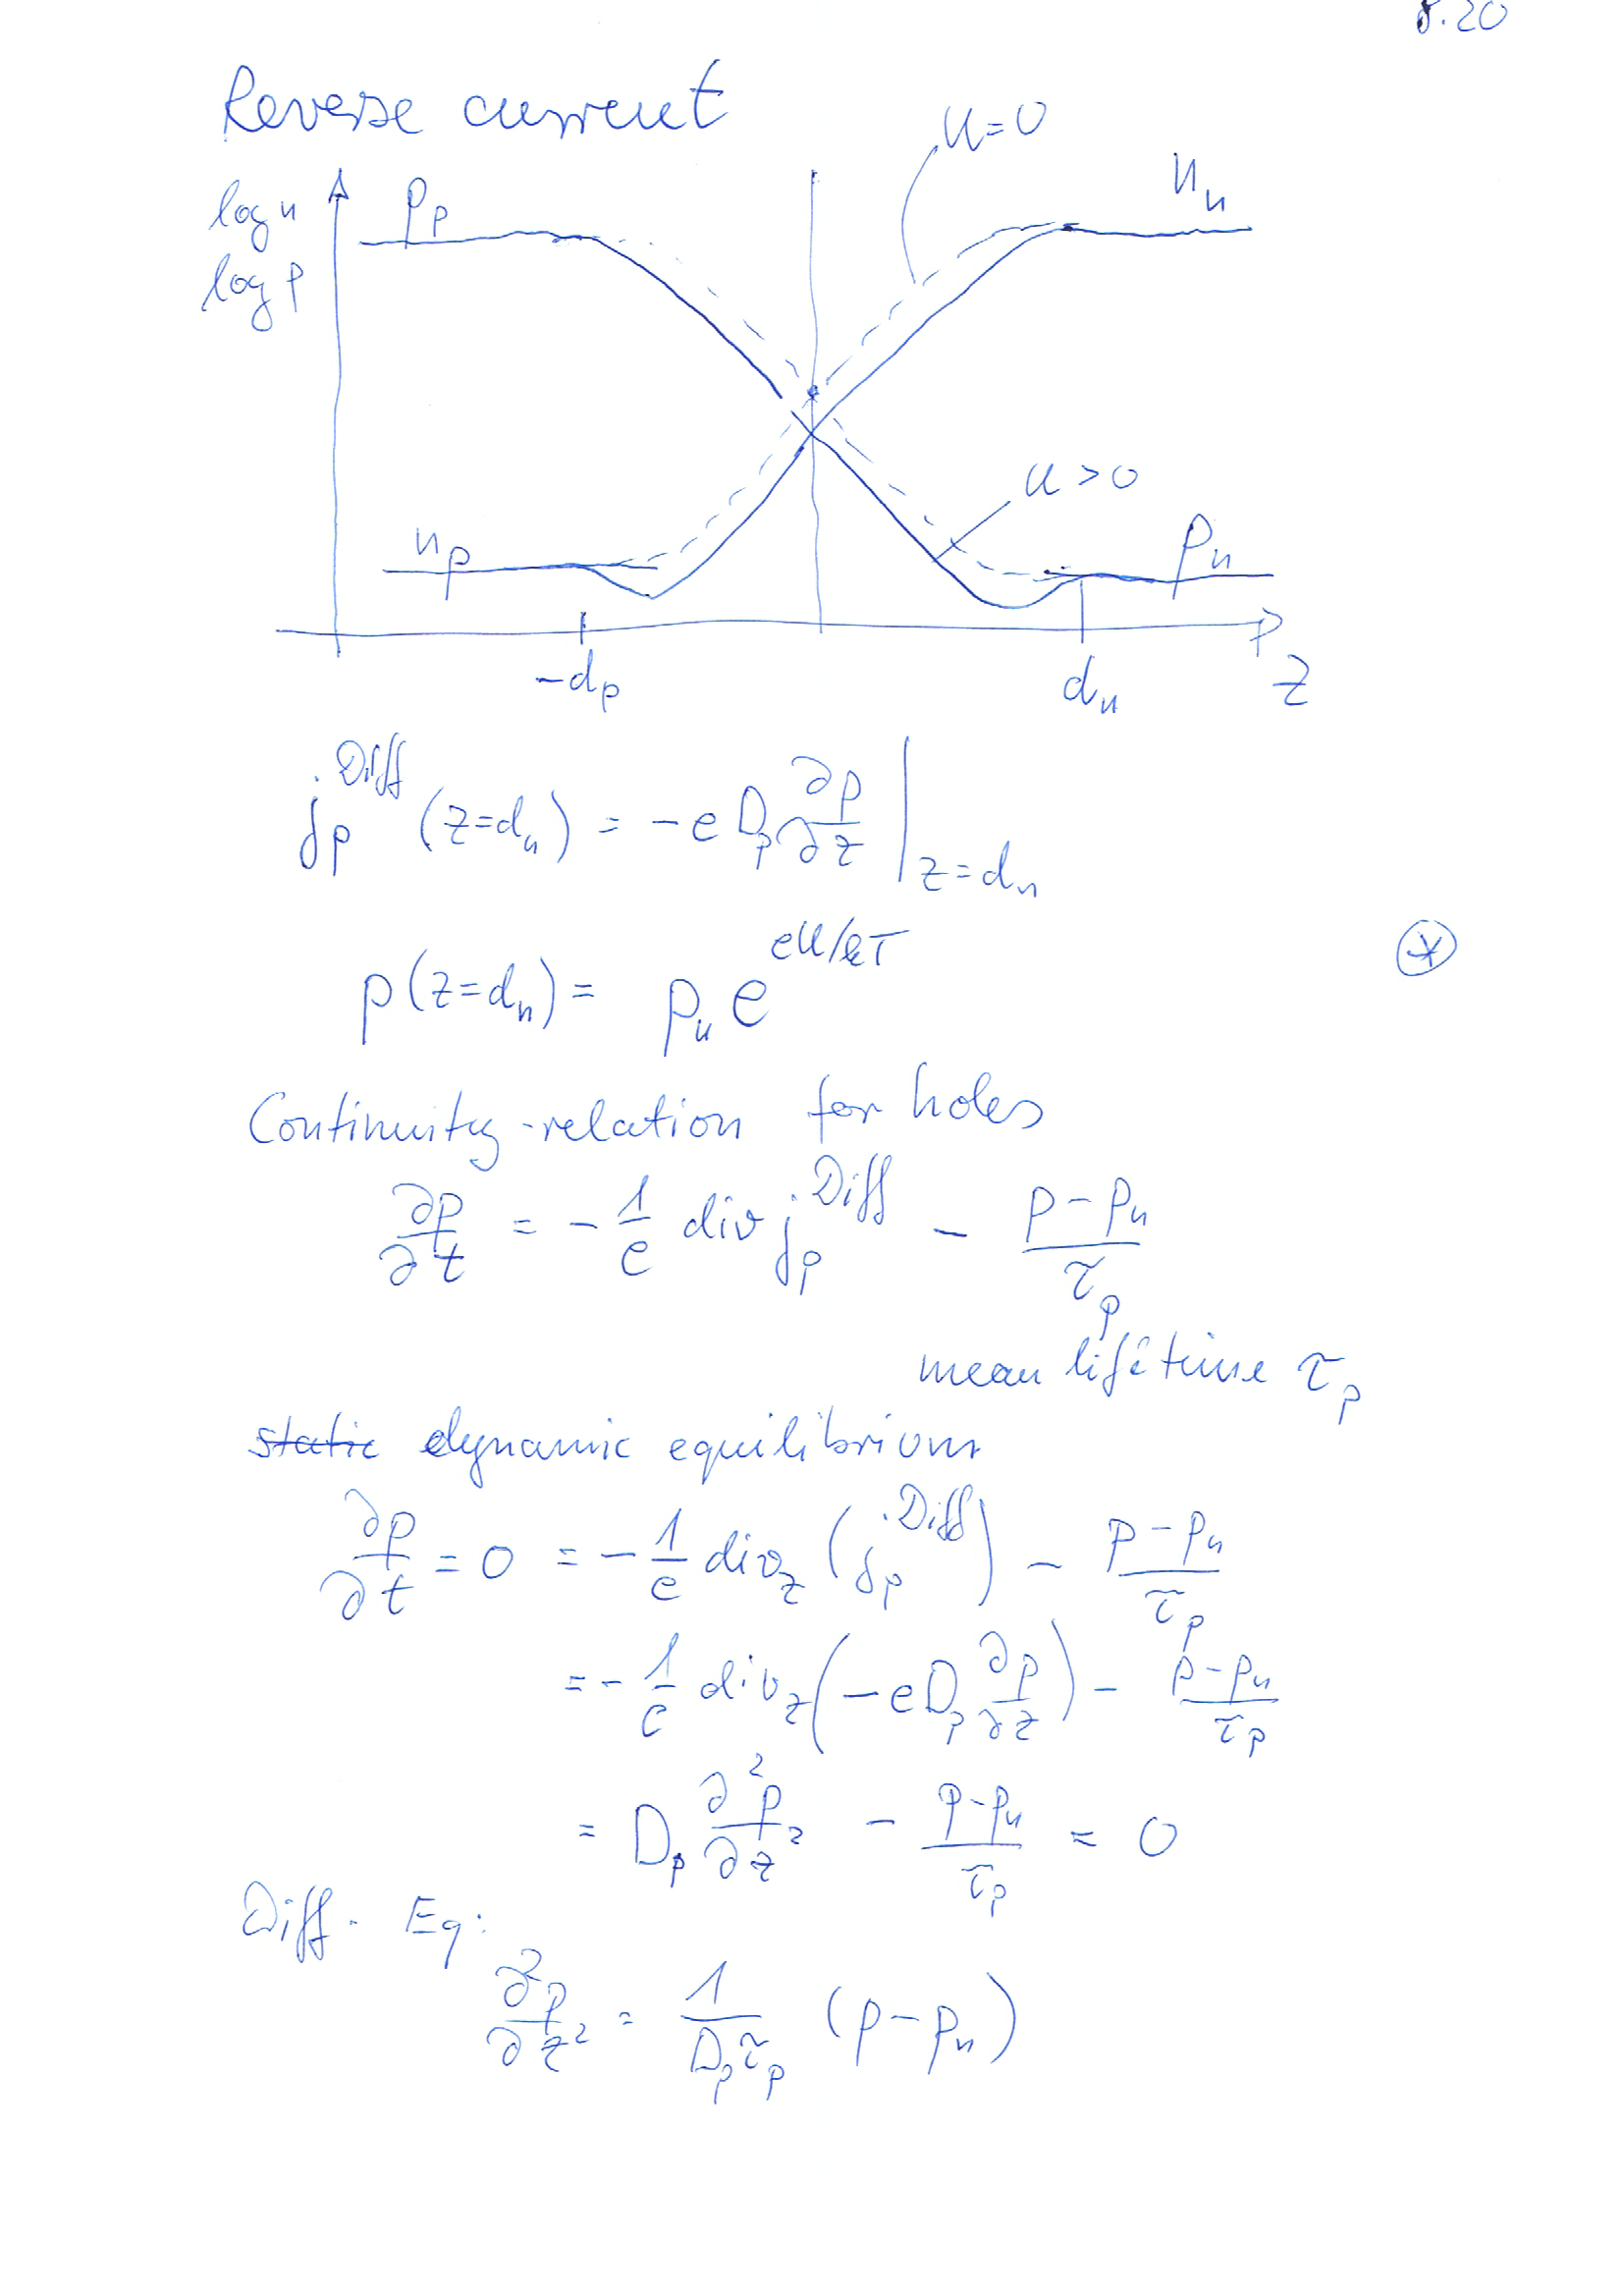 8.20
Reverse current
U=0
log n
log p
p_p
n_n
U>0
n_p
p_n
-d_p
d_n
z
j_p^Diff (z=d_n) = -e D_p ∂p/∂z |_{z=d_n}
p(z=d_n) = p_n e^{eU/kT} ⊛
Continuity-relation for holes
∂p/∂t = - 1/e div j_p^Diff - (p-p_n)/τ_p
mean lifetime τ_p
static dynamic equilibrium
∂p/∂t = 0 = - 1/e div_z (j_p^Diff) - (p-p_n)/τ_p
= - 1/e div_z (-e D_p ∂p/∂z) - (p-p_n)/τ_p
= D_p ∂²p/∂z² - (p-p_n)/τ_p = 0
Diff. Eq:
∂²p/∂z² = 1/(D_p τ_p) (p-p_n)